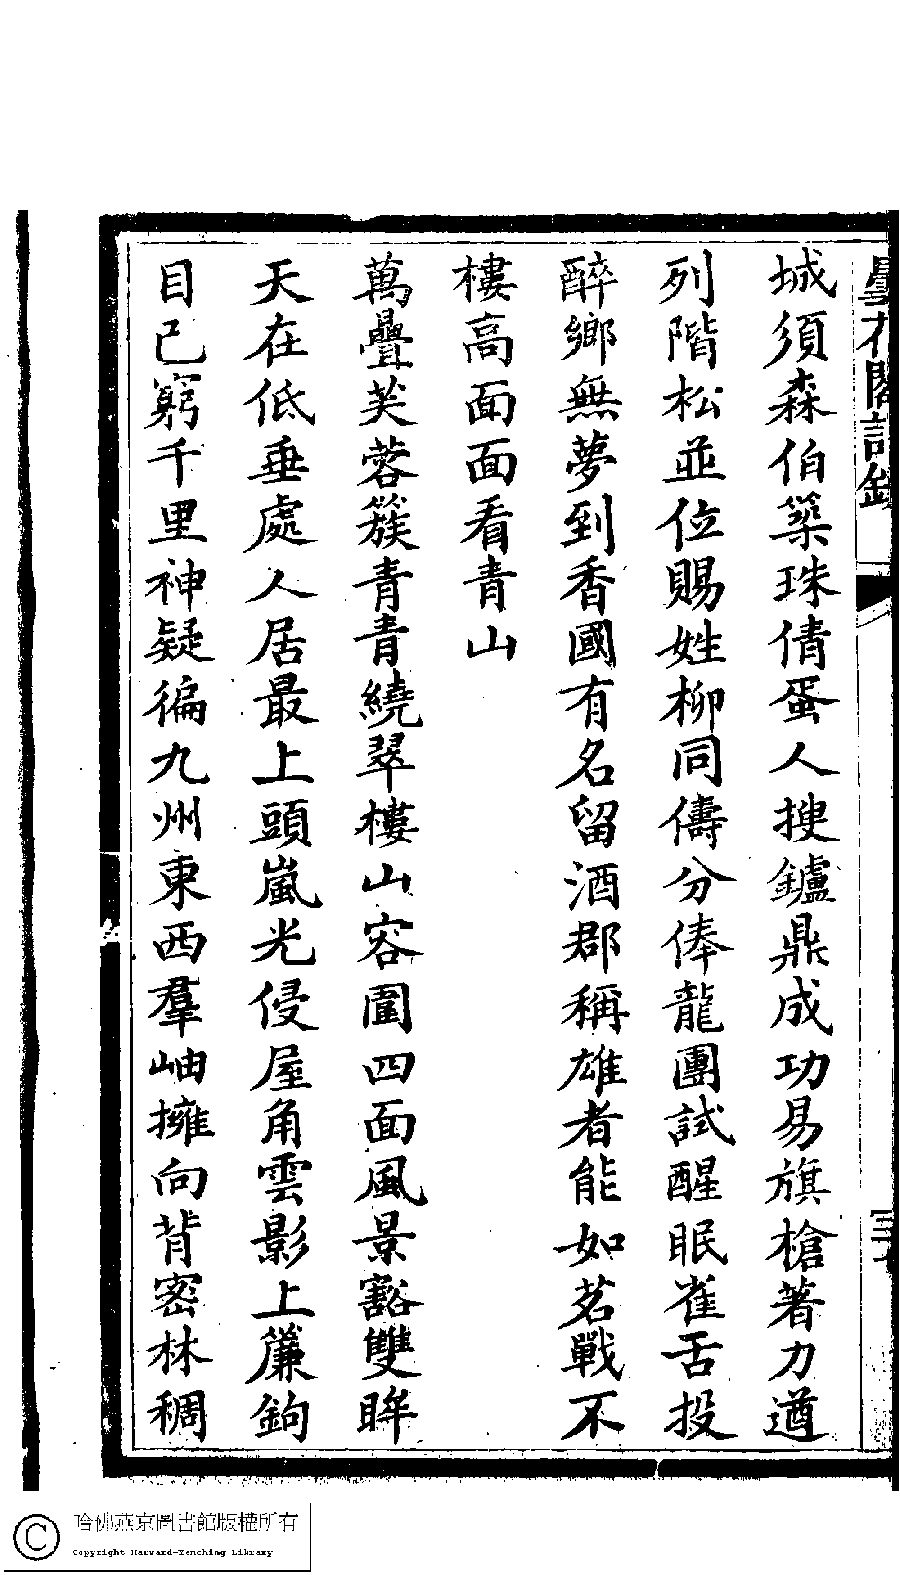 曇花閣詩鈔
城須森伯築珠倩蛋人搜鑪鼎成功易旗槍著力遒
列階松並位賜姓柳同儔分俸龍團試醒眠雀舌投
醉鄉無夢到香國有名留酒郡稱雄者能如茗戰不
樓高面面看青山
萬疊芙蓉簇青青繞翠樓山容圍四面風景豁雙眸
天在低垂處人居最上頭嵐光侵屋角雲影上簾鉤
目已窮千里神疑徧九州東西羣岫擁向背密林稠
哈佛燕京圖書館版權所有
Copyright Harvard-Yenching Library